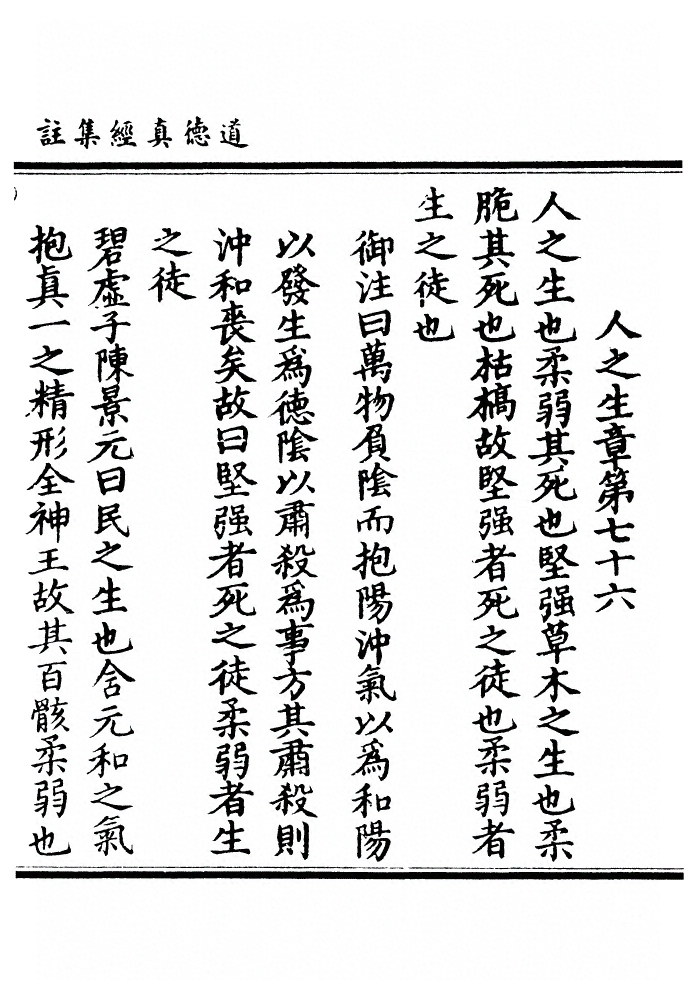 道德真經集註
人之生章第七十六
人之生也柔弱其死也堅强草木之生也柔
脆其死也枯槁故堅强者死之徒也柔弱者
生之徒也
御注曰萬物負陰而抱陽沖氣以爲和陽
以發生爲德陰以肅殺爲事方其肅殺則
沖和喪矣故曰堅强者死之徒柔弱者生
之徒
碧虛子陳景元曰民之生也含元和之氣
抱眞一之精形全神王故其百骸柔弱也